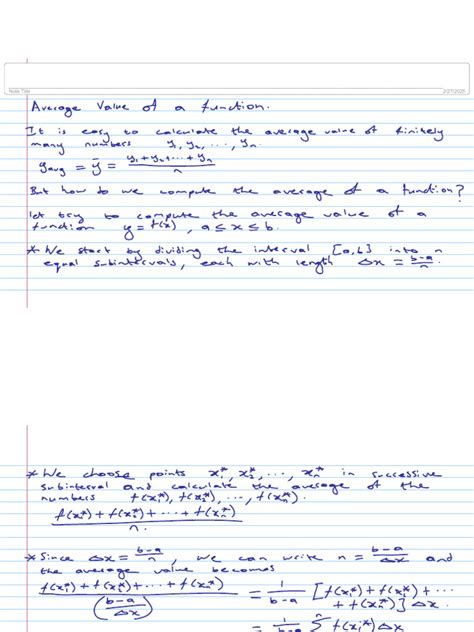 Note Title
2/27/2025
Average Value of a function.
It is easy to calculate the average value of finitely
many numbers y₁, y₂, ..., yₙ.
y_avg = ȳ = (y₁+y₂+...+yₙ)/n
But how do we compute the average of a function?
let try to compute the average value of a
function y=f(x), a≤x≤b.
* We start by dividing the interval [a,b] into n
equal subintervals, each with length Δx = (b-a)/n.
* We choose points x₁*, x₂*, ..., xₙ* in successive
subinterval and calculate the average of the
numbers f(x₁*), f(x₂*), ..., f(xₙ*).
(f(x₁*)+f(x₂*)+...+f(xₙ*))/n.
* Since Δx = (b-a)/n, we can write n = (b-a)/Δx and
the average value becomes
(f(x₁*)+f(x₂*)+...+f(xₙ*))/((b-a)/Δx) = 1/(b-a) [f(x₁*)+f(x₂*)+...
+f(xₙ*)]Δx
= 1/(b-a) Σⁿ f(xᵢ*)Δx